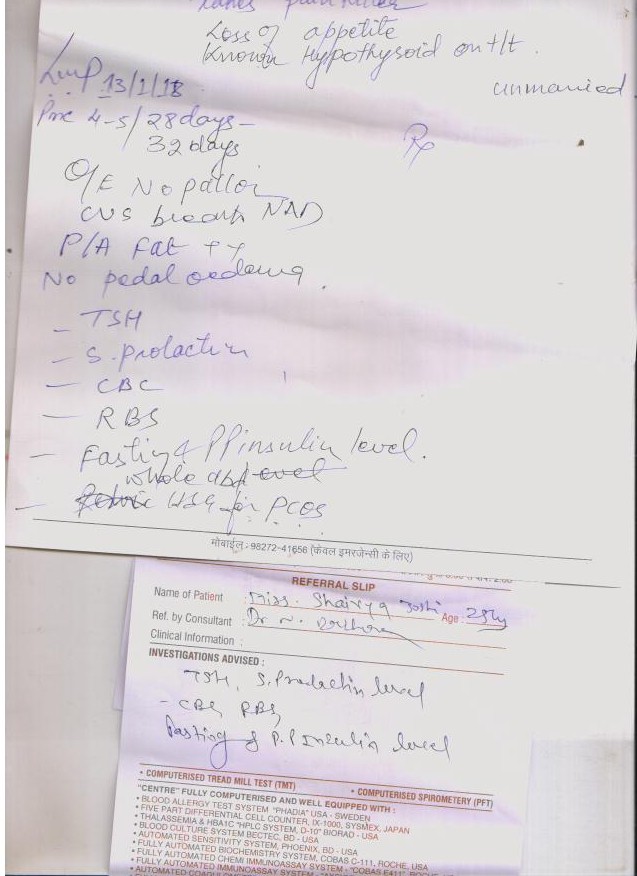 Loss of appetite
Known Hypothyroid on t/t.
unmarried
Lmp 13/1/18
Pmc 4-5/28days-
32 days
Rx
O/E No pallor
CVS NAD
P/A Fat ++
No pedal oedema.
- TSH
- S. prolactin
- CBC
- RBS
- Fasting & PP insulin level.
whole abd
USG for PCOS
मोबाईल : 98272-41656 (केवल इमरजेन्सी के लिए)
REFERRAL SLIP
Name of Patient : Miss. Joshi Age :
Ref. by Consultant : Dr N.
Clinical Information :
INVESTIGATIONS ADVISED :
TSH, S. Prolactin level
- CBC, RBS,
Fasting & P.P Insulin level
• COMPUTERISED TREAD MILL TEST (TMT) • COMPUTERISED SPIROMETRY (PFT)
"CENTRE" FULLY COMPUTERISED AND WELL EQUIPPED WITH :
• BLOOD ALLERGY TEST SYSTEM "PHADIA" USA - SWEDEN
• FIVE PART DIFFERENTIAL CELL COUNTER, IX-1000, SYSMEX, JAPAN
• THALASSEMIA & HBA1C "HPLC SYSTEM, D-10" BIORAD - USA
• BLOOD CULTURE SYSTEM BECTEC, BD - USA
• AUTOMATED SENSITIVITY SYSTEM, PHOENIX, BD - USA
• FULLY AUTOMATED BIOCHEMISTRY SYSTEM, COBAS C-111, ROCHE, USA
• FULLY AUTOMATED CHEMI IMMUNOASSAY SYSTEM - "COBAS E411" ROCHE
• FULLY AUTOMATED IMMUNOASSAY SYSTEM